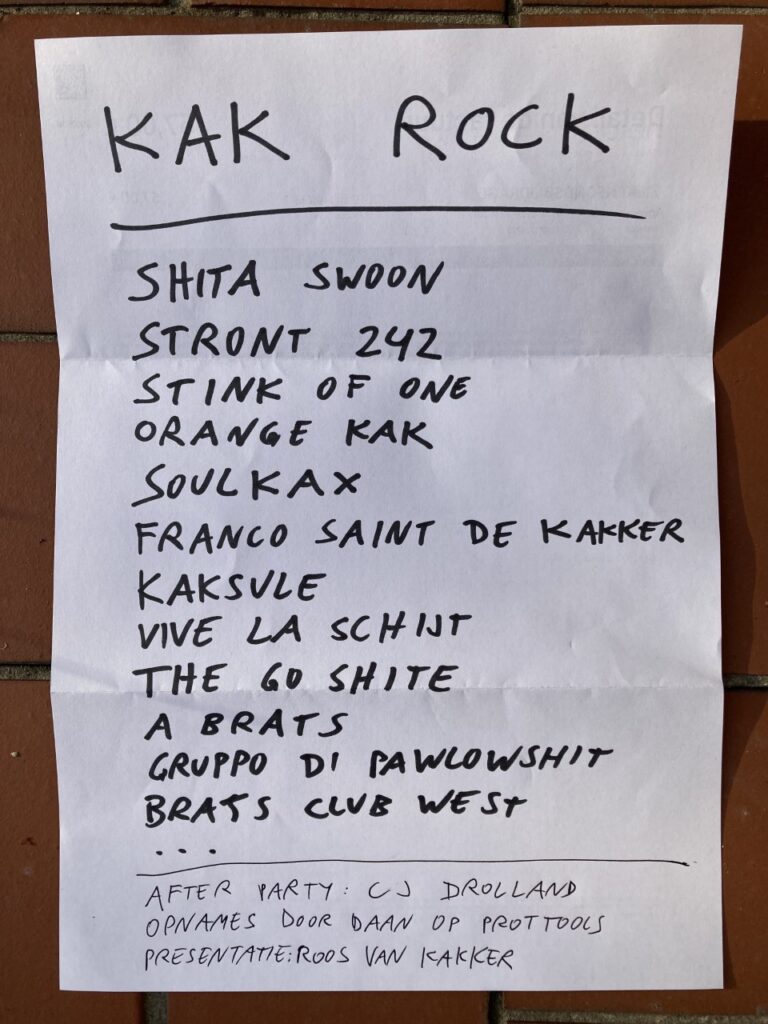 KAK ROCK
SHITA SWOON
STRONT 242
STINK OF ONE
ORANGE KAK
SOULKAX
FRANCO SAINT DE KAKKER
KAKSULE
VIVE LA SCHIJT
THE GO SHITE
A BRATS
GRUPPO DI PAWLOWSHIT
BRATS CLUB WEST
...
AFTER PARTY: CJ DROLLAND
OPNAMES DOOR DAAN OP PROTTOOLS
PRESENTATIE: ROOS VAN KAKKER